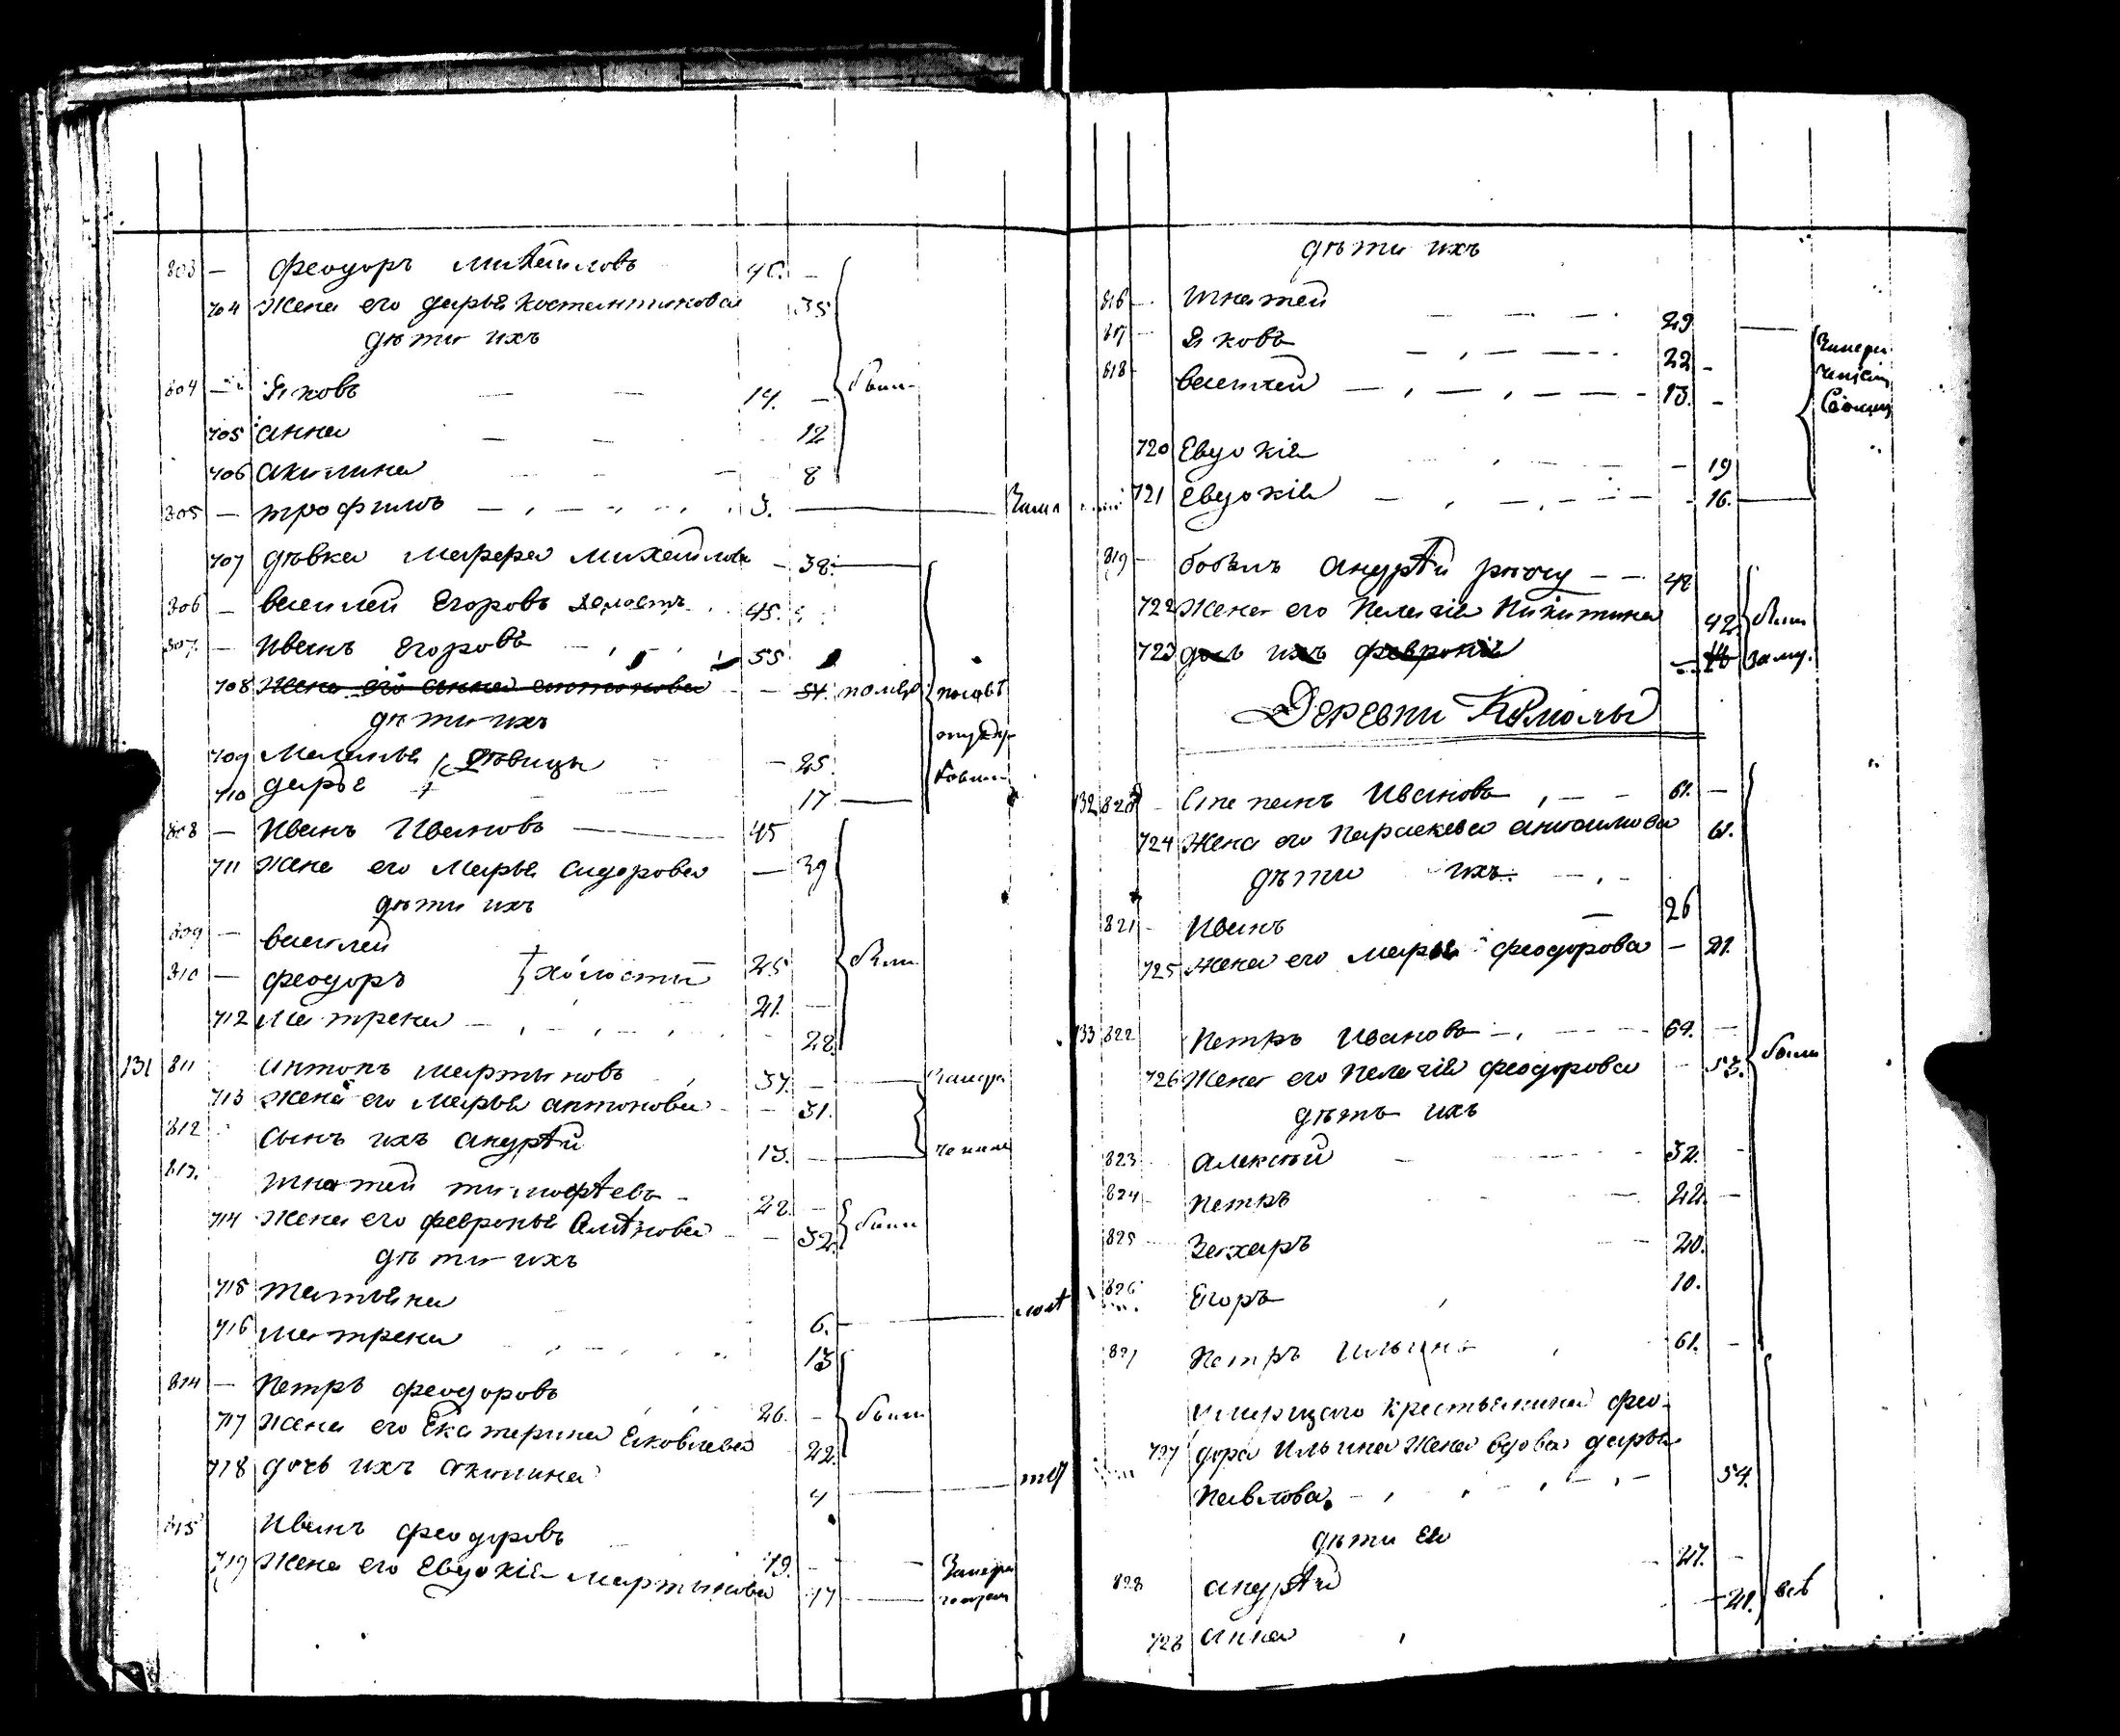 803 — Феодоръ Михайловъ 40. —
704 Жена его дарья Костантинова 35
дѣти ихъ
804 — Яковъ — — 14. — были
705 анна — — 12
706 акилина — 8
805 — трофимъ — 3.
707 дѣвка марфа Михайлова — 38.
806 — василей Егоровъ 45.
807. — Иванъ Егоровъ — 55
708 Жена его анна антонова — 54. померла
дѣти ихъ
709 Маланья дѣвицы — 25.
710 дарья 17
808 — Иванъ Ивановъ — 45
711 Жена его Марья сидорова — 39
дѣти ихъ
809 — василей
810 — феодоръ холосты 25 были
21.
712 Матрена — 28.
131 811 антонъ мартыновъ 37. —
713 Жена его Марья антонова — 31.
812 сынъ ихъ андрѣй 13. —
813. Игнатей тимофѣевъ 22. —
714 Жена его февронья — 32. были
дѣти ихъ
715 татьяна 6.
716 матрена 13
814 — Петръ феодоровъ 26. — были
717 Жена его Екатерина Яковлева 22.
718 дочь ихъ акилина 4
815 Иванъ феодоровъ 19. —
719 Жена его Евдокія Мартынова 17
дѣти ихъ
816 — Игнатей 29
817 — Яковъ — 22 —
818 — василей — 13. —
720 Евдокія — 19
721 Евдокія — 16.
819 — бобыль андрѣй — — 48
722 Жена его Пелагія Никитина 42. были
723 дочь ихъ февронія — 18 заму.
Деревни
132 820 — Степанъ Ивановъ — 61. —
724 Жена его Параскева 61.
дѣти ихъ
821 — Иванъ — 26
725 Жена его марья феодорова — 21.
133 822 Петръ Ивановъ — 64. —
726 Жена его Пелагія феодорова — 53. были
дѣти ихъ
823 алексѣй 32. —
824 — Петръ — 22. —
825 Захаръ — 20.
826 Егоръ 10.
827 Петръ Ильинъ 61. —
умершаго крестьянина фео-
727 дора Ильина Жена вдова дарья
Павлова. — 54.
дѣти Ея
828 андрѣй — 27. —
728 анна 21. всѣ